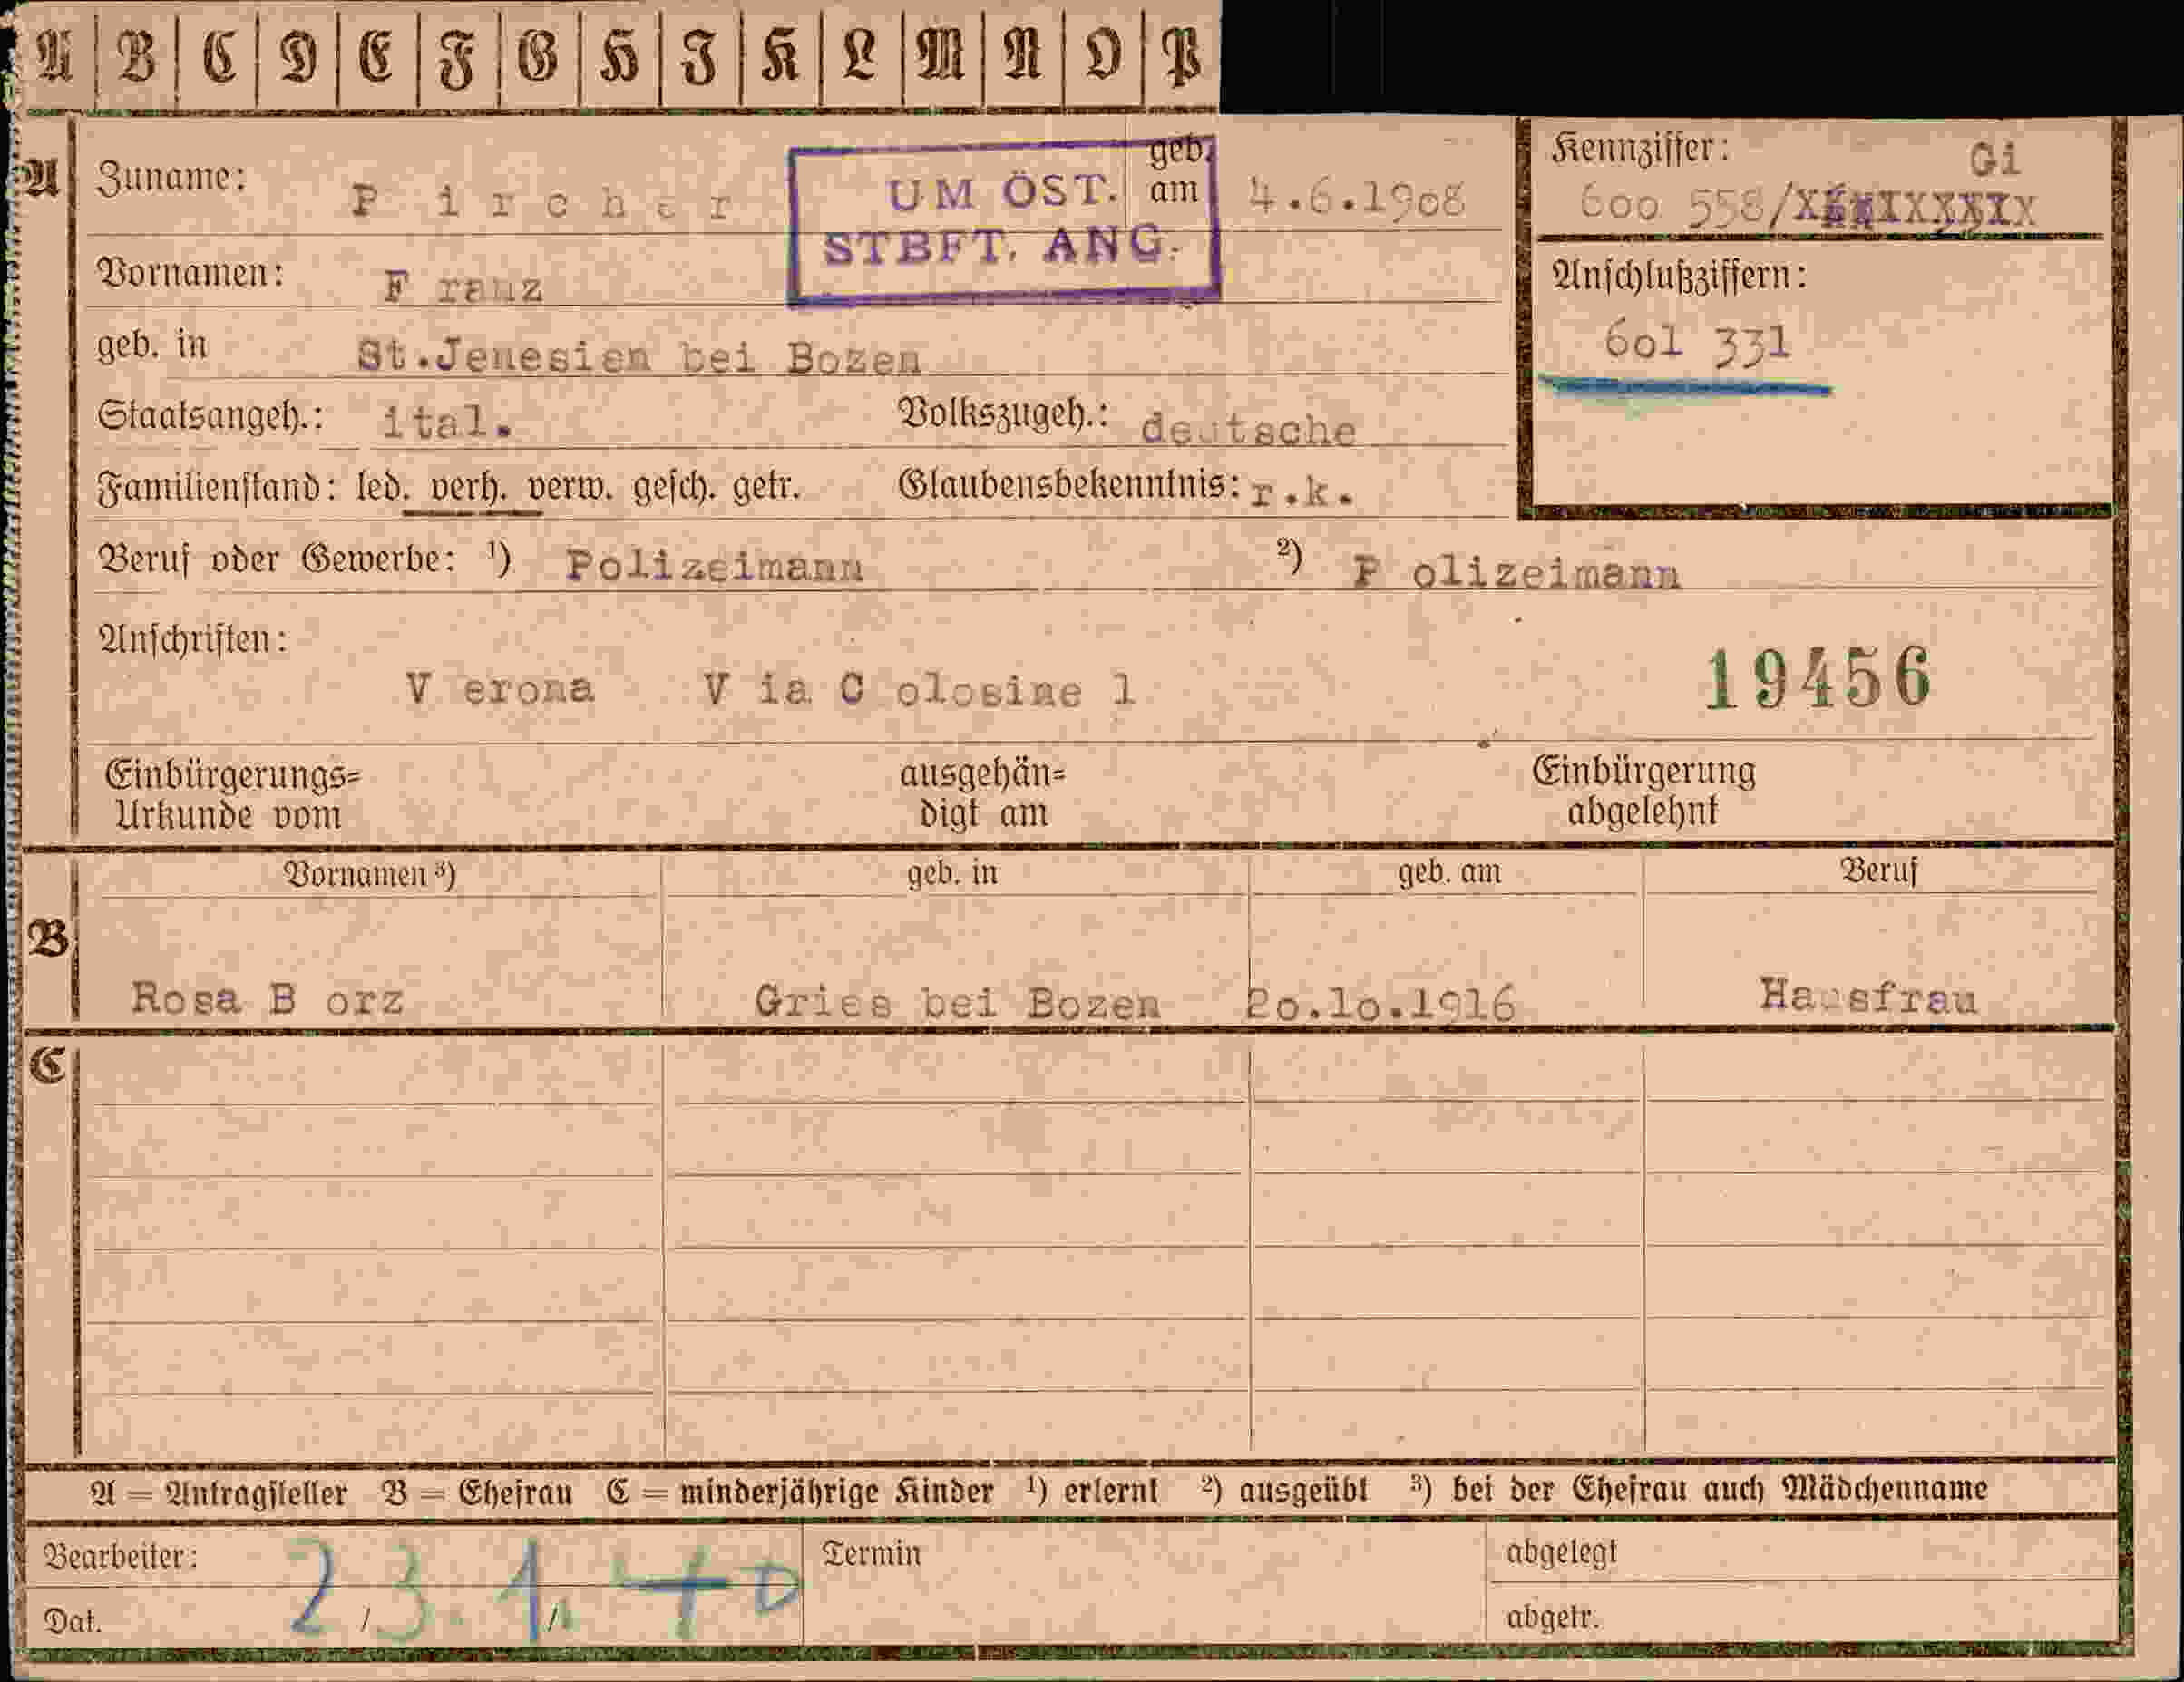 A B C D E F G H I K L M N O P
A Zuname: Pircher geb. am 4.6.1908
UM ÖST.
STBFT. ANG.
Kennziffer: Gi
600 558/
Vornamen: F ranz
Anschlußziffern:
601 331
geb. in St.Jenesien bei Bozen
Staatsangeh.: ital. Volkszugeh.: deutsche
Familienstand: led. verh. verw. gesch. getr. Glaubensbekenntnis: r.k.
Beruf oder Gewerbe: ¹) Polizeimann ²) P olizeimann
Anschriften:
V erona V ia C olosine 1
19456
Einbürgerungs=
Urkunde vom
ausgehän=
digt am
Einbürgerung
abgelehnt
Vornamen ³) geb. in geb. am Beruf
B
Rosa B orz Gries bei Bozen 2o.1o.1916 Hausfrau
C
A = Antragsteller B = Ehefrau C = minderjährige Kinder ¹) erlernt ²) ausgeübt ³) bei der Ehefrau auch Mädchenname
Bearbeiter: Termin abgelegt
23.1.40
Dat. abgetr.